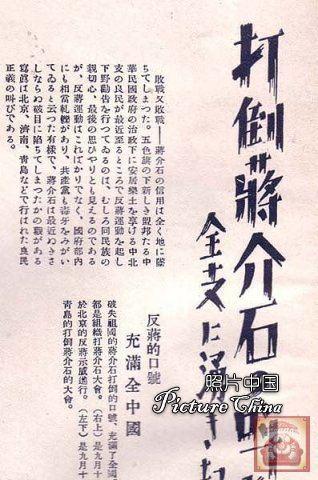 打倒蔣介石の
全支に湧き
敗戰又敗戰──蔣介石の信用は全く地に墜
ちてしまつた。五色旗の下新しき盟邦たる中
華民國政府の治政下に安居樂土を享ける中北
支の良民が最近至るところで反蔣運動を起し
下野勸告を行つてゐるのは、むしろ同民族の
親切心、最後の思ひやりとも見えるのである
が、反蔣運動はこればかりでなく、國府部內
にも相當軋轢があり、共產黨も毒牙をみがい
てゐると云つた有樣で、蔣介石は最近ぬきさ
しならぬ破目に陷ちてしまつたかの觀がある
寫眞は北京、濟南、青島などで行はれた良民
正義の叫びである。
反蔣的口號
充滿全中國
破失祖國的蔣介石打倒的口號、充滿了全國
都是組織打蔣介石大會。（右上）是九月十
於北京的反蔣示威遊行。（左下）是九月十
青島的打倒蔣介石的大會。
照片中国
Picture China